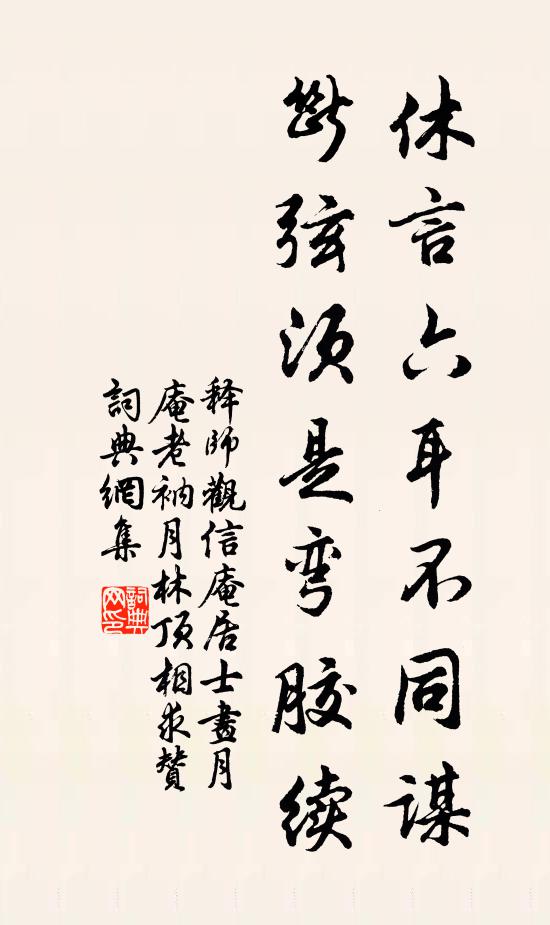 休言六耳不同謀
斷弦须是弯胶续
释師觀信庵居士畫月
庵老衲月林顶相求赞
詞典網集
詞典网印